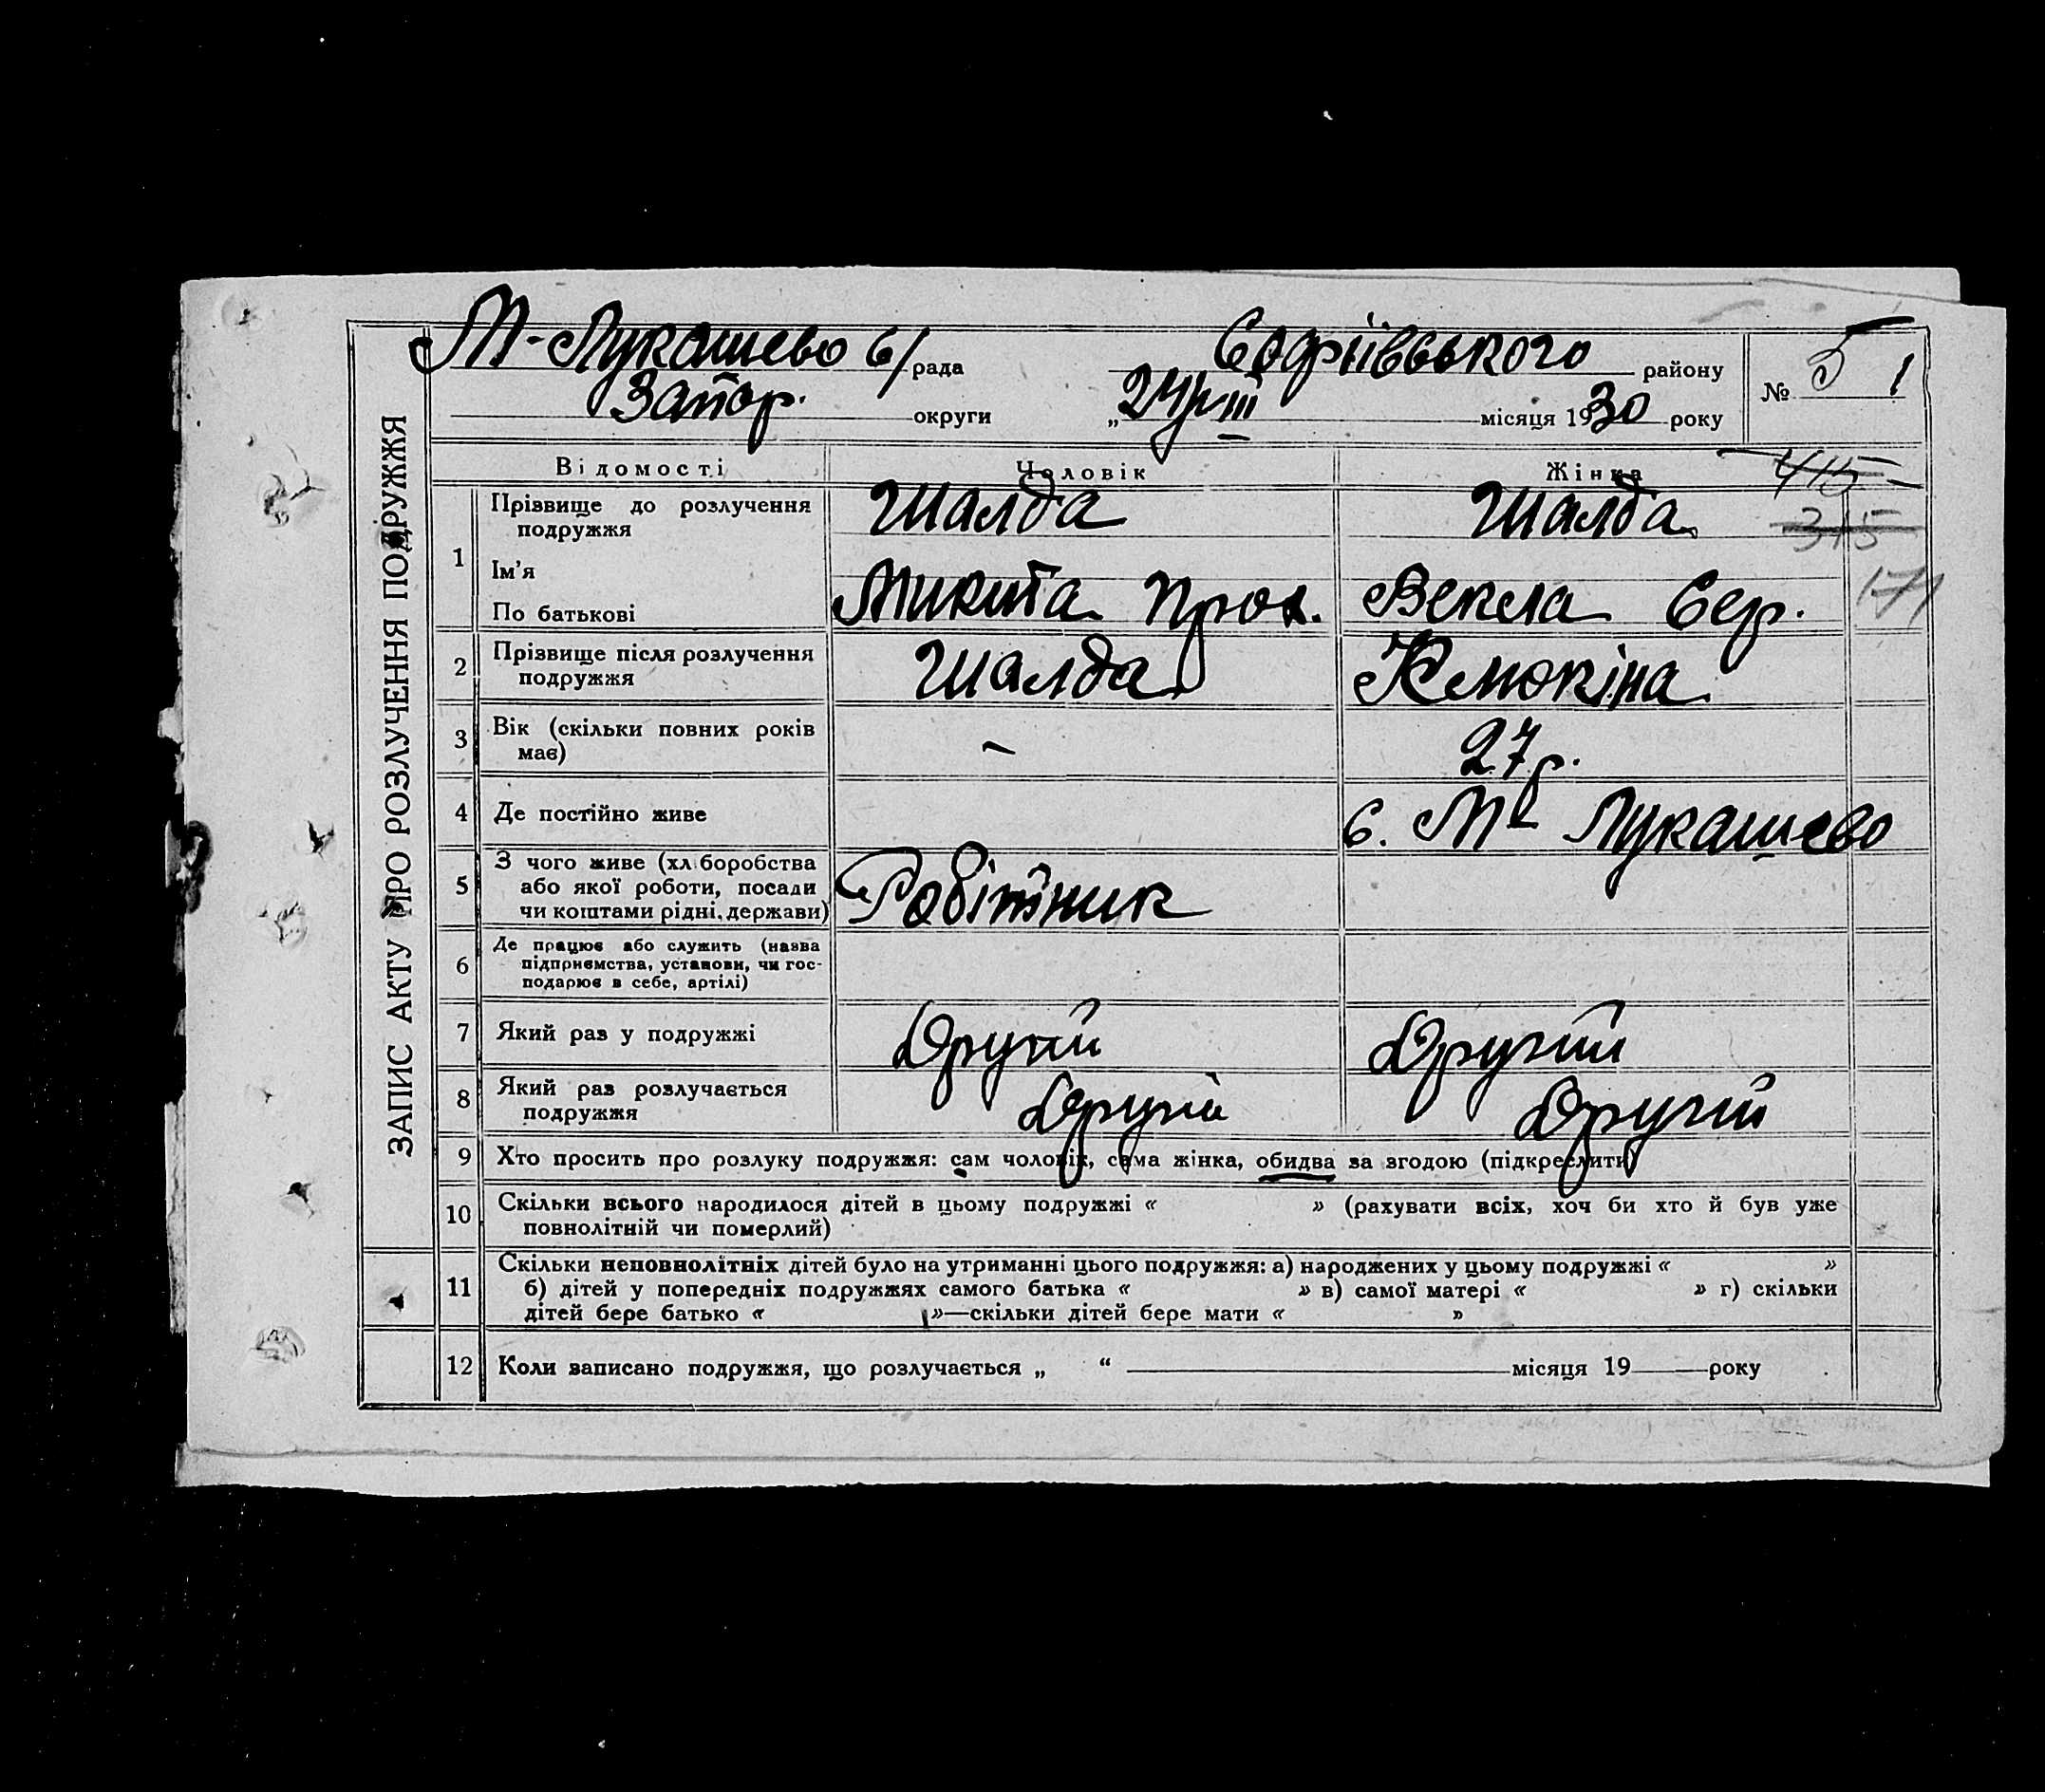 ЗАПИС АКТУ ПРО РОЗЛУЧЕННЯ ПОДРУЖЖЯ
М-Лукашево с/рада Софіївського району № 5 1
Запор. округи „24/III місяця 1930 року
Відомості Чоловік Жінка 415
1 Прізвище до розлучення Шалда Шалда 315
подружжя
Ім'я Микита Прок. Векла Сер. 171
По батькові
2 Прізвище після розлучення Шалда Клюкіна
подружжя
3 Вік (скільки повних років – 27 р.
має)
4 Де постійно живе с. М- Лукашево
5 З чого живе (хліборобства Робітник
або якої роботи, посади
чи коштами рідні, держави)
6 Де працює або служить (назва
підприємства, установи, чи гос-
подарює в себе, артілі)
7 Який раз у подружжі Другий Другий
8 Який раз розлучається Другий Другий
подружжя
9 Хто просить про розлуку подружжя: сам чоловік, сама жінка, обидва за згодою (підкреслити)
10 Скільки всього народилося дітей в цьому подружжі « » (рахувати всіх, хоч би хто й був уже
повнолітній чи померлий)
11 Скільки неповнолітніх дітей було на утриманні цього подружжя: а) народжених у цьому подружжі « »
б) дітей у попередніх подружжях самого батька « » в) самої матері « » г) скільки
дітей бере батько « »—скільки дітей бере мати « »
12 Коли записано подружжя, що розлучається „ “ місяця 19 року